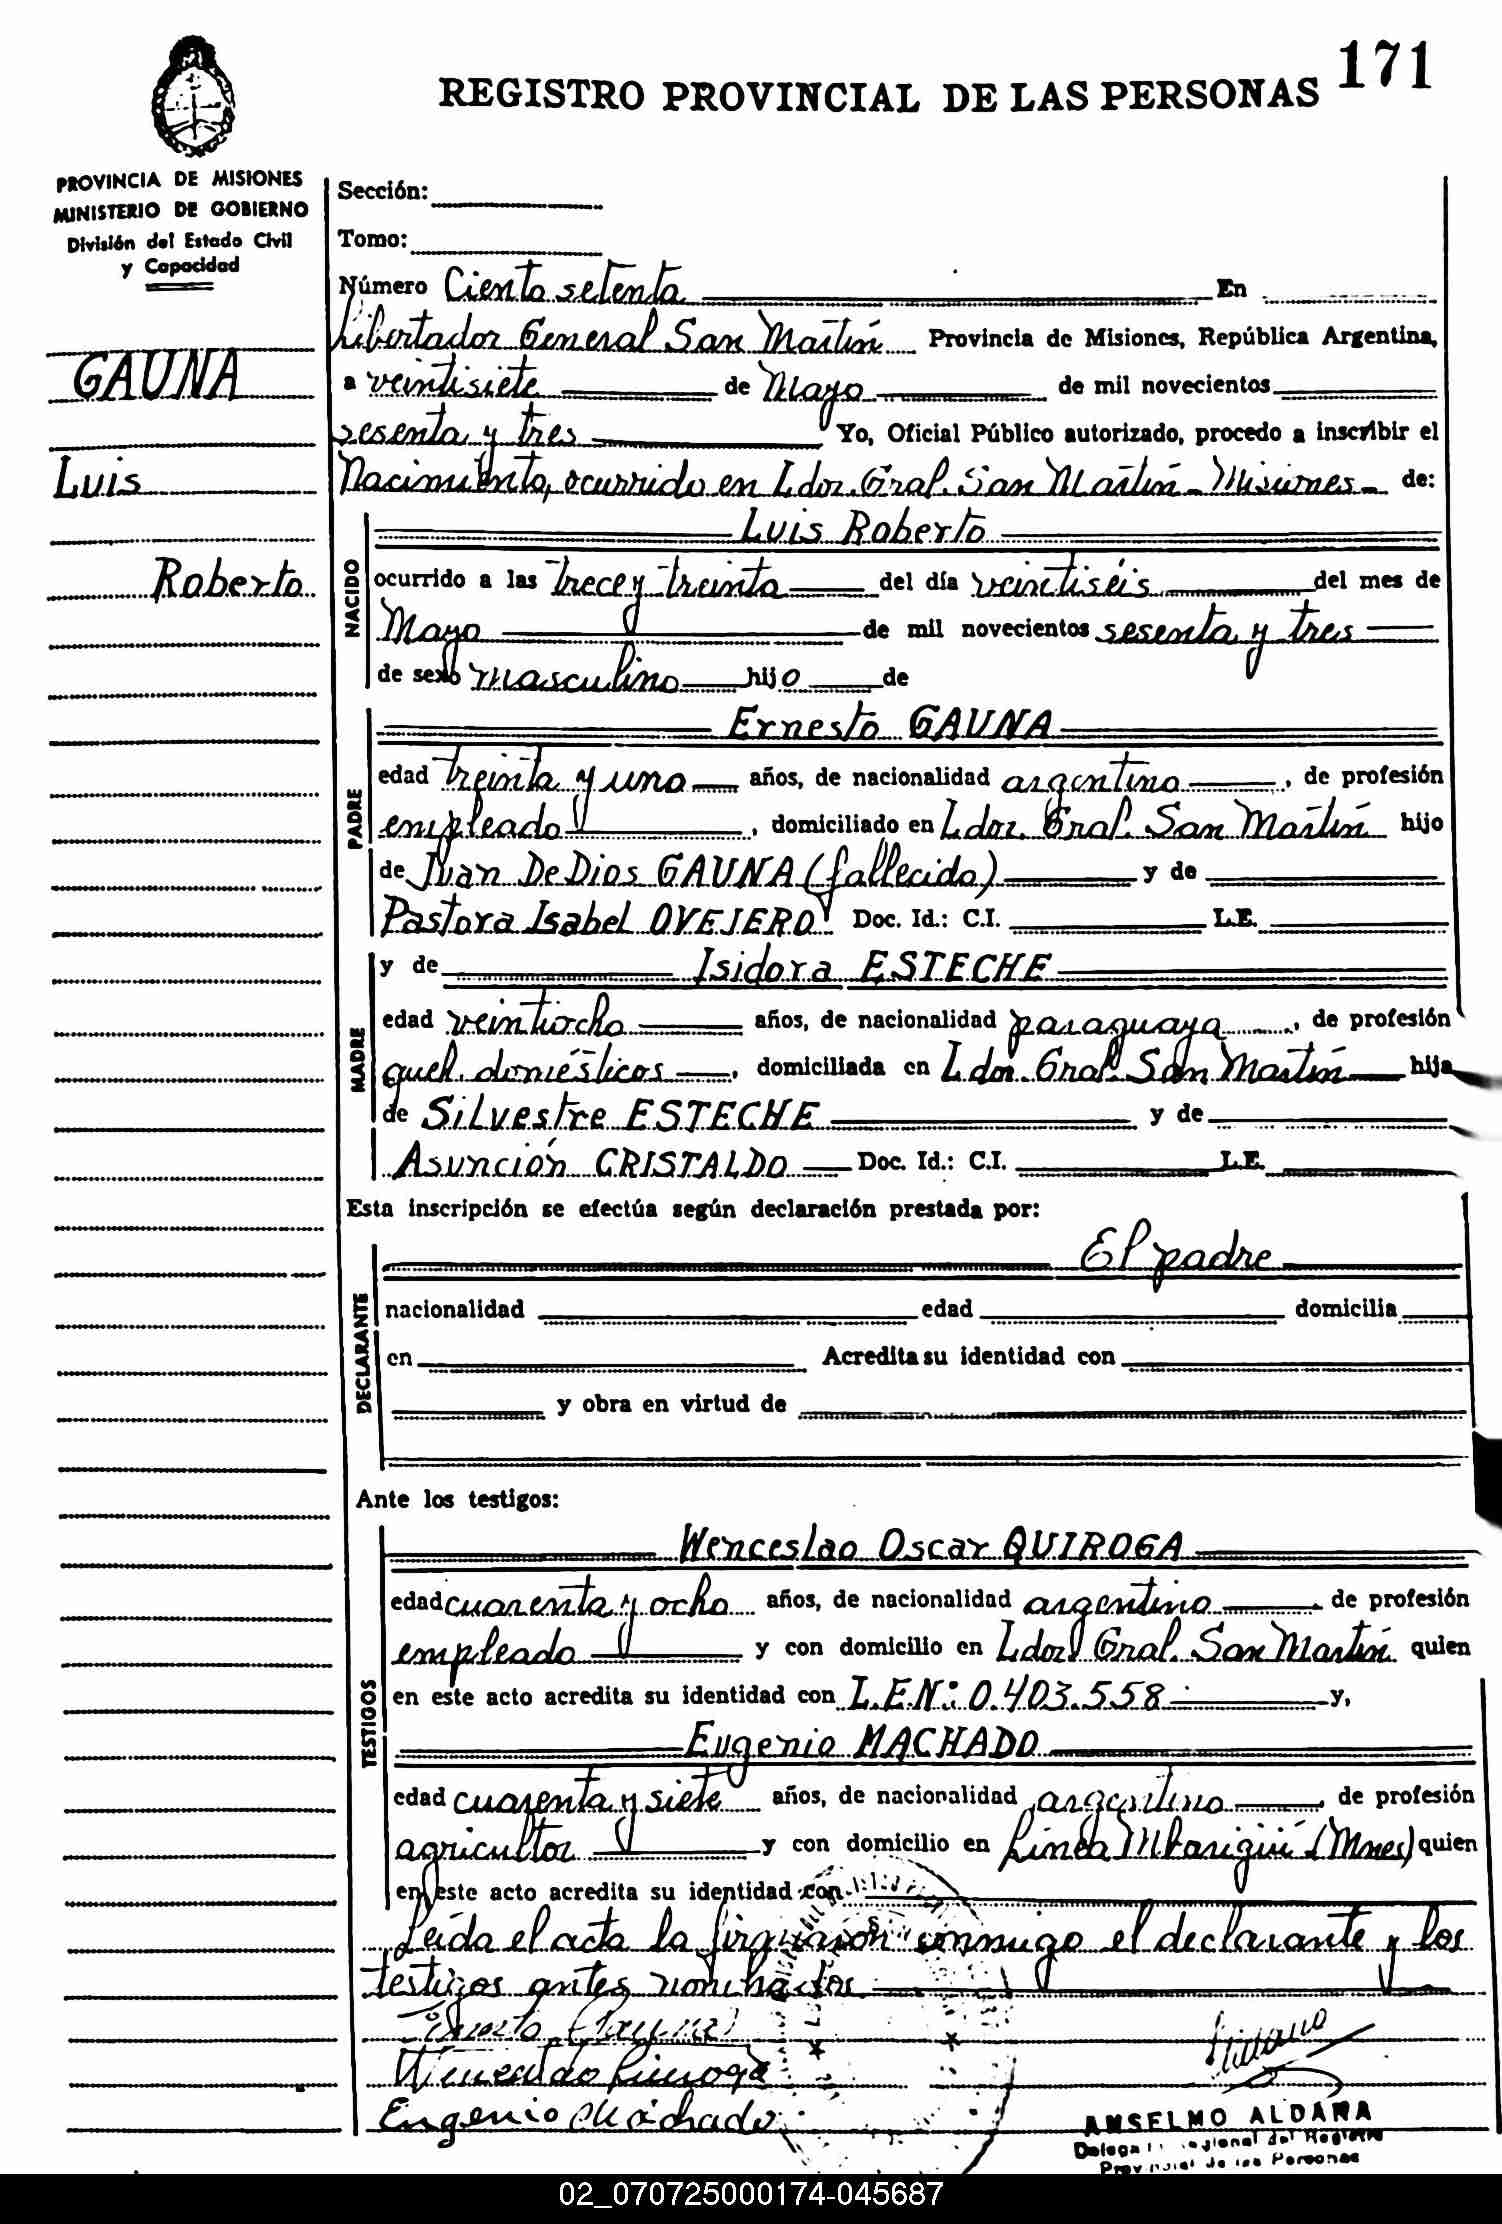 171
REGISTRO PROVINCIAL DE LAS PERSONAS
PROVINCIA DE MISIONES
MINISTERIO DE GOBIERNO
División del Estado Civil
y Capacidad
GAUNA
Luis
Roberto
Sección:
Tomo:
Número Ciento setenta En
Libertador General San Martín Provincia de Misiones, República Argentina,
a veintisiete de Mayo de mil novecientos
sesenta y tres Yo, Oficial Público autorizado, procedo a inscribir el
Nacimiento, ocurrido en Ldor. Gral. San Martín - Misiones - de:
NACIDO
Luis Roberto
ocurrido a las trece y treinta del día veintiséis del mes de
Mayo de mil novecientos sesenta y tres
de sexo masculino hijo de
PADRE
Ernesto GAUNA
edad treinta y uno años, de nacionalidad argentino, de profesión
empleado, domiciliado en Ldor. Gral. San Martín hijo
de Juan De Dios GAUNA (fallecido) y de
Pastora Isabel OVEJERO Doc. Id.: C.I. L.E.
MADRE
y de Isidora ESTECHE
edad veintiocho años, de nacionalidad paraguaya, de profesión
queh. domésticos, domiciliada en Ldor. Gral. San Martín hija
de Silvestre ESTECHE y de
Asunción CRISTALDO Doc. Id.: C.I. L.E.
Esta inscripción se efectúa según declaración prestada por:
DECLARANTE
El padre
nacionalidad edad domicilia
en Acredita su identidad con
y obra en virtud de
Ante los testigos:
TESTIGOS
Wenceslao Oscar QUIROGA
edad cuarenta y ocho años, de nacionalidad argentino de profesión
empleado y con domicilio en Ldor. Gral. San Martín quien
en este acto acredita su identidad con L.E.N: 0.403.558 y,
Eugenio MACHADO
edad cuarenta y siete años, de nacionalidad argentino, de profesión
agricultor y con domicilio en Línea Mbariguí (Mnes) quien
en este acto acredita su identidad con
Leída el acta la firmaron conmigo el declarante y los
testigos antes nombrados
Ernesto Gauna
Wenceslao Quiroga
Eugenio Machado
ANSELMO ALDANA
Delegado Regional del Registro
Provincial de las Personas
02_070725000174-045687